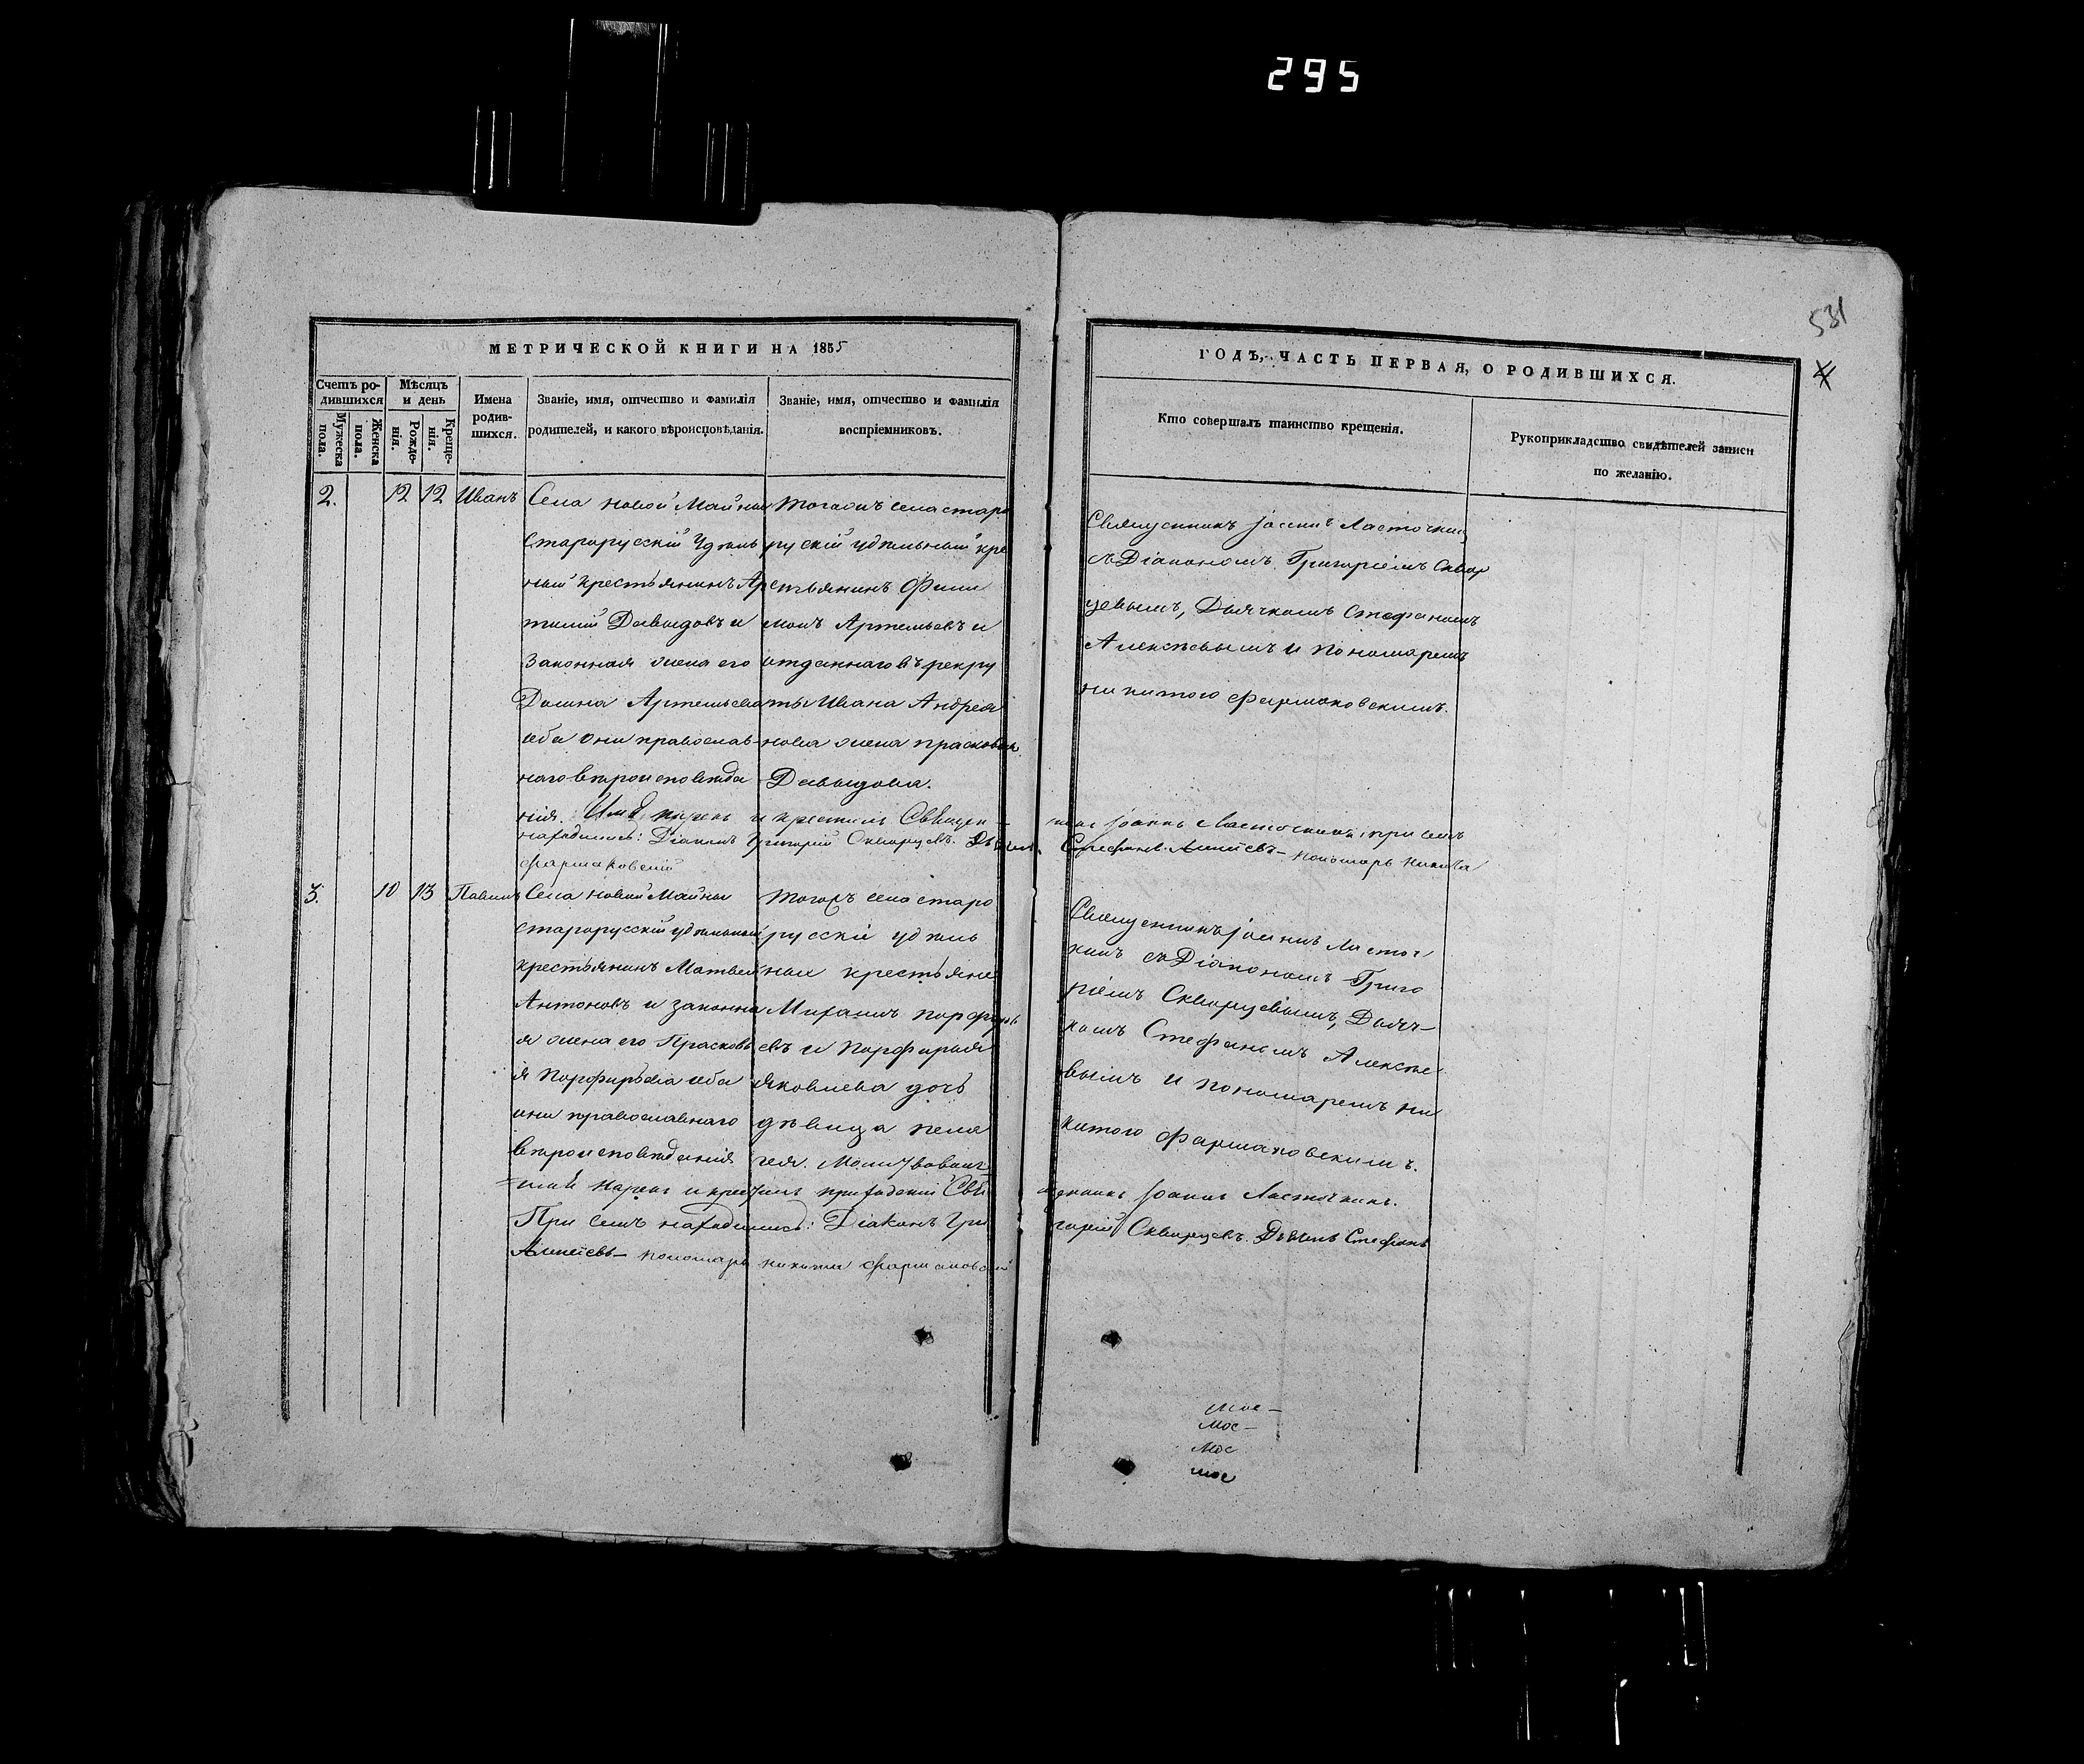 295
531
4
МЕТРИЧЕСКОЙ КНИГИ НА 1855
ГОДЪ, ЧАСТЬ ПЕРВАЯ, О РОДИВШИХСЯ.
Счетъ ро-
дившихся
Мужеска
пола.
Женска
пола.
Мѣсяцъ
и день
Рожде-
нія.
Креще-
нія.
Имена
родив-
шихся.
Званіе, имя, отчество и фамилія
родителей, и какого вѣроисповѣданія.
Званіе, имя, отчество и фамилія
воспріемниковъ.
Кто совершалъ таинство крещенія.
Рукоприкладство свидѣтелей записи
по желанію.
2.
12
12
Иванъ
Села Новой Майны
Старорусскій Удѣль
ный крестьянинъ Ар
тимій Давыдовъ и
Законная жена его
Домна Артемьева
оба они православ-
наго вѣроисповѣда
нія.
тогожъ села старо
рускій удѣльный кре
стьянинъ Фили
монъ Артемьевъ и
отданнаго въ рекру
ты Ивана Андрея
нова жена прасковья
Давыдова.
Священникъ Іоаннъ Ласточкинъ
съ Діакономъ Григоріемъ Сквор
цевымъ, Дьячкомъ Стефаномъ
Алексѣевымъ и пономаремъ
никитою фармаковскимъ.
нарекъ и крестилъ Священ-
никъ Іоаннъ Ласточкинъ; при семъ
находились: Діаконъ Григорій Скворцевъ.
Стефанъ Алексѣевъ – пономарь Никита
фармаковскій
3.
10
13
Павелъ
Села Новой Майны
старорусскій удѣльный
крестьянинъ Матвей
Антоновъ и законна
я жена его Прасковь
я Порфирьева оба
они православнаго
вѣроисповѣданія
тогожъ села старо
русскіе удѣль
ные крестьяне
Михаилъ порфирь
евъ и Порфирья
Яковлева дочь
дѣвица пела
гея.
Священникъ Іоаннъ Ласточ
кинъ съ Діакономъ Григо
ріемъ Скворцевымъ, Дьяч-
комъ Стефаномъ Алексѣе
вымъ и пономаремъ ни
китою фармаковскимъ.
нарекъ и крестилъ приходскій Свя
щенникъ Іоаннъ Ласточкинъ.
При семъ находились: Діаконъ Гри
горій Скворцевъ. Стефанъ
Алексѣевъ – пономарь никита фармаковскій